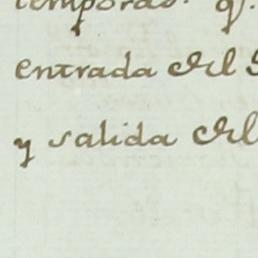 temporas. q.
entrada del
y salida del